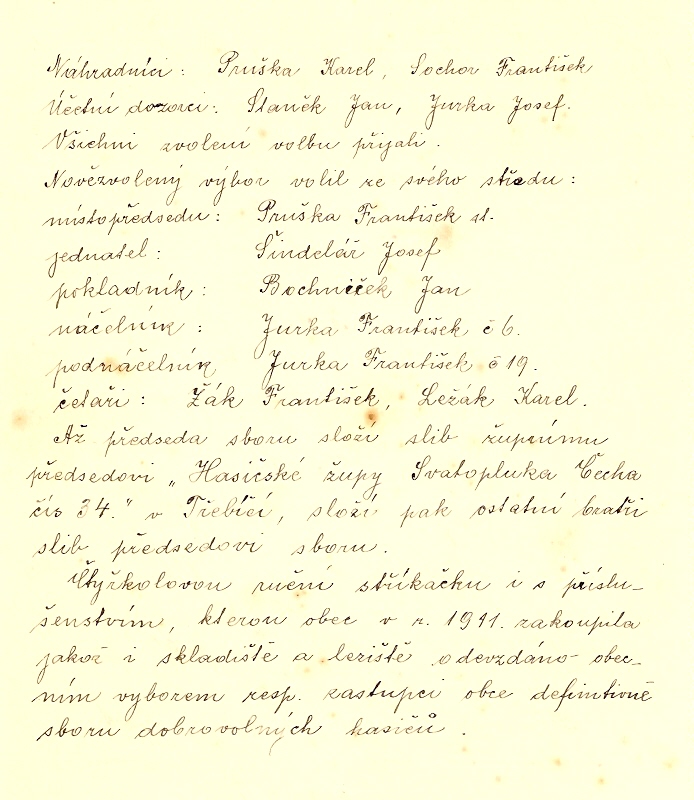 Náhradníci: Pruška Karel, Sochor František
Účetní dozorci: Staněk Jan, Jurka Josef.
Všichni zvolení volbu přijali.
Novězvolený výbor volil ze svého středu:
místopředsedu: Pruška František st.
jednatel: Šindelář Josef
pokladník: Bochníček Jan
náčelník: Jurka František č 6.
podnáčelník Jurka František č 19.
četaři: Žák František, Ležák Karel.
Až předseda sboru složí slib župnímu
předsedovi „Hasičské župy Svatopluka Čecha
čís 34." v Třebíčí, složí pak ostatní bratři
slib předsedovi sboru.
Čtyřkolovou ruční stříkačku i s příslu-
šenstvím, kterou obec v r. 1911. zakoupila
jakož i skladiště a leziště odevzdáno obec-
ním vyborem resp. zastupci obce definitivně
sboru dobrovolných hasičů.